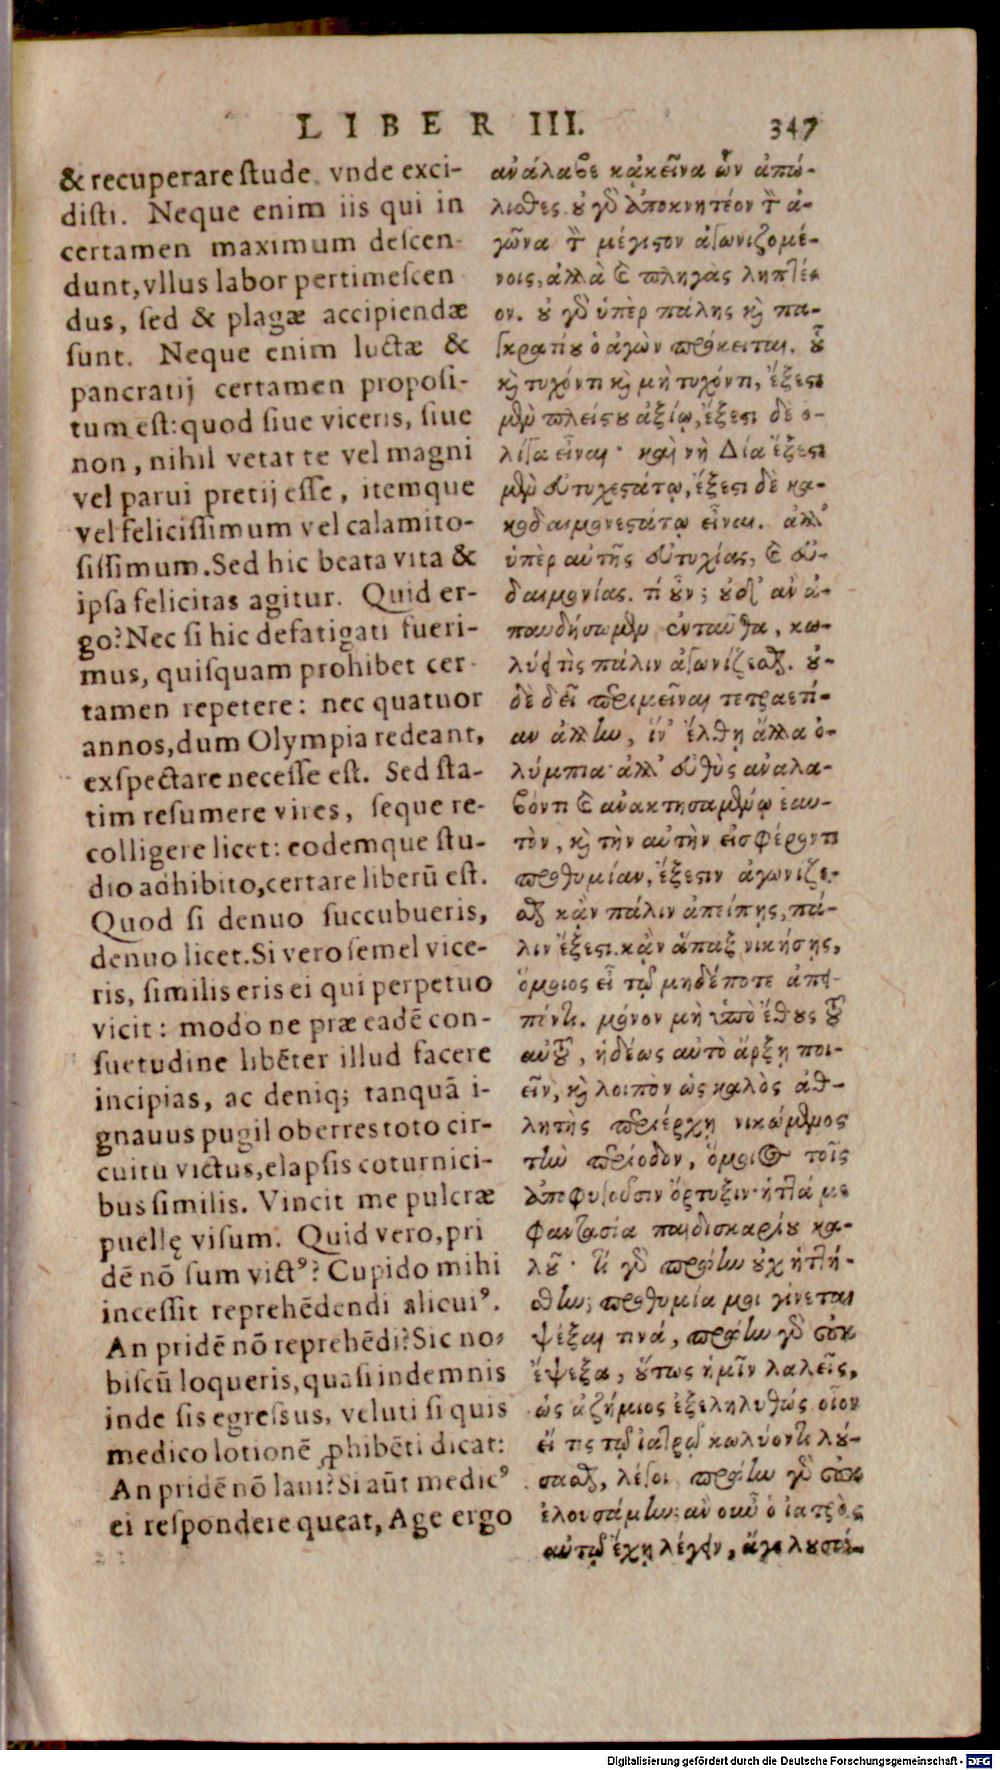 LIBER III. 347
& recuperare stude vnde exci-
disti. Neque enim iis qui in
certamen maximum descen-
dunt, vllus labor pertimescen
dus, sed & plagæ accipiendæ
sunt. Neque enim luctæ &
pancratij certamen proposi-
tum est: quod siue viceris, siue
non, nihil vetat te vel magni
vel parui pretij esse, itemque
vel felicissimum vel calamito-
sissimum. Sed hic beata vita &
ipsa felicitas agitur. Quid er-
go? Nec si hic defatigati fueri-
mus, quisquam prohibet cer-
tamen repetere: nec quatuor
annos, dum Olympia redeant,
exspectare necesse est. Sed sta-
tim resumere vires, seque re-
colligere licet: eodemque stu-
dio adhibito, certare liberū est.
Quod si denuo succubueris,
denuo licet. Si vero semel vice-
ris, similis eris ei qui perpetuo
vicit: modo ne præ eadē con-
suetudine libēter illud facere
incipias, ac deniq; tanquā i-
gnauus pugil oberres toto cir-
cuitu victus, elapsis coturnici-
bus similis. Vincit me pulcræ
puellę visum. Quid vero, pri
dē nō sum vict⁹? Cupido mihi
incessit reprehēdendi alicui⁹.
An pridē nō reprehēdi? Sic no-
biscū loqueris, quasi indemnis
inde sis egressus, veluti si quis
medico lotionē ꝓhibēti dicat:
An pridē nō laui? Si aūt medic⁹
ei respondere queat, Age ergo
ἀνάλαβε κἀκεῖνα ὧν ἀπώ-
λισθες. οὐ γὸ ἀποκνητέον τὸν ἀ-
γῶνα τὸν μέγιστον ἀγωνιζομέ-
νοις, ἀλλὰ καὶ πληγὰς ληπτέ-
ον. οὐ γὸ ὑπὲρ πάλης καὶ πα-
γκρατίου ὁ ἀγὼν πρόκειται. οὗ
καὶ τυχόντι καὶ μὴ τυχόντι, ἔξεστι
μὲν πλείστου ἀξίῳ, ἔξεστι δὲ ὀ-
λίγα εἶναι· καὶ νὴ Δία ἔξεστι
μὲν εὐτυχεστάτῳ, ἔξεστι δὲ κα-
κοδαιμονεστάτῳ εἶναι. ἀλλ'
ὑπὲρ αὐτῆς εὐτυχίας, καὶ εὐ-
δαιμονίας. τί οὖν; οὐδ' ἂν ἀ-
παυδήσωμεν ἐνταῦθα, κω-
λύει τὶς πάλιν ἀγωνίζεσθαι. οὐ-
δὲ δεῖ περιμεῖναι τετραετί-
αν ἄλλην, ἵν' ἔλθῃ ἄλλα ὀ-
λύμπια· ἀλλ' εὐθὺς ἀναλα-
βόντι καὶ ἀνακτησαμένῳ ἑαυ-
τὸν, καὶ τὴν αὐτὴν εἰσφέροντι
προθυμίαν, ἔξεστιν ἀγωνίζε-
σθαι κἂν πάλιν ἀπείπῃς, πά-
λιν ἔξεστι. κἂν ἅπαξ νικήσῃς,
ὅμοιος εἶ τῷ μηδέποτε ἀπει-
πόντι. μόνον μὴ ὑπὸ ἔθους τοῦ
αὐτοῦ, ἡδέως αὐτὸ ἄρξῃ ποι-
εῖν, καὶ λοιπὸν ὡς κακὸς ἀθ-
λητὴς περιέρχῃ νικώμενος
τὴν περίοδον, ὅμοιος τοῖς
ἀποφυγοῦσιν ὄρτυξιν· ἡττᾷ με
φαντασία παιδισκαρίου κα-
λοῦ· τί γὸ πρώην οὐχ ἡττή-
θην; προθυμία μοι γίνεται
ψέξαι τινά, πρώην γὸ οὐκ
ἔψεξα, οὕτως ἡμῖν λαλεῖς,
ὡς ἀζήμιος ἐξεληλυθώς οἷον
εἴ τις τῷ ἰατρῷ κωλύοντι λού-
σασθαι, λέγοι, πρώην γὸ οὐκ
ἐλουσάμην: ἂν οὖν ὁ ἰατρὸς
αὐτῷ ἔχῃ λέγειν, ἄγε λουσά-
Digitalisierung gefördert durch die Deutsche Forschungsgemeinschaft - DFG